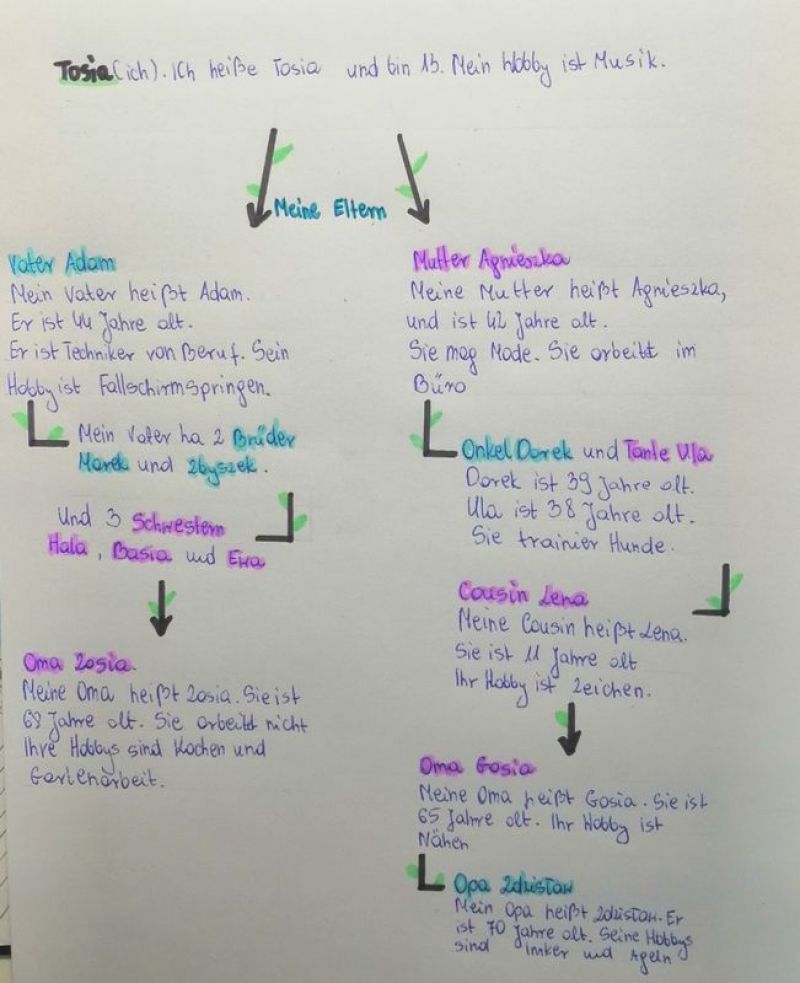 Tosia (ich). Ich heiße Tosia und bin 13. Mein Hobby ist Musik.
Meine Eltern
Vater Adam
Mein Vater heißt Adam.
Er ist 44 Jahre alt.
Er ist Techniker von Beruf. Sein
Hobby ist Fallschirmspringen.
Mein Vater ha 2 Brüder
Marek und Zbyszek.
Und 3 Schwestern
Hala, Basia und Ewa
Oma Zosia.
Meine Oma heißt Zosia. Sie ist
69 Jahre alt. Sie arbeitt nicht
Ihre Hobbys sind Kochen und
Gartenarbeit.
Mutter Agnieszka
Meine Mutter heißt Agnieszka,
und ist 42 Jahre alt.
Sie mag Mode. Sie arbeitt im
Büro
Onkel Darek und Tante Ula
Darek ist 39 Jahre alt.
Ula ist 38 Jahre alt.
Sie trainier Hunde.
Cousin Lena
Meine Cousin heißt Lena.
Sie ist 11 Jahre alt
Ihr Hobby ist Zeichen.
Oma Gosia
Meine Oma heißt Gosia. Sie ist
65 Jahre alt. Ihr Hobby ist
Nähen
Opa Zdzisław
Mein Opa heißt Zdzisław. Er
ist 70 Jahre alt. Seine Hobbys
sind Imker und Ageln